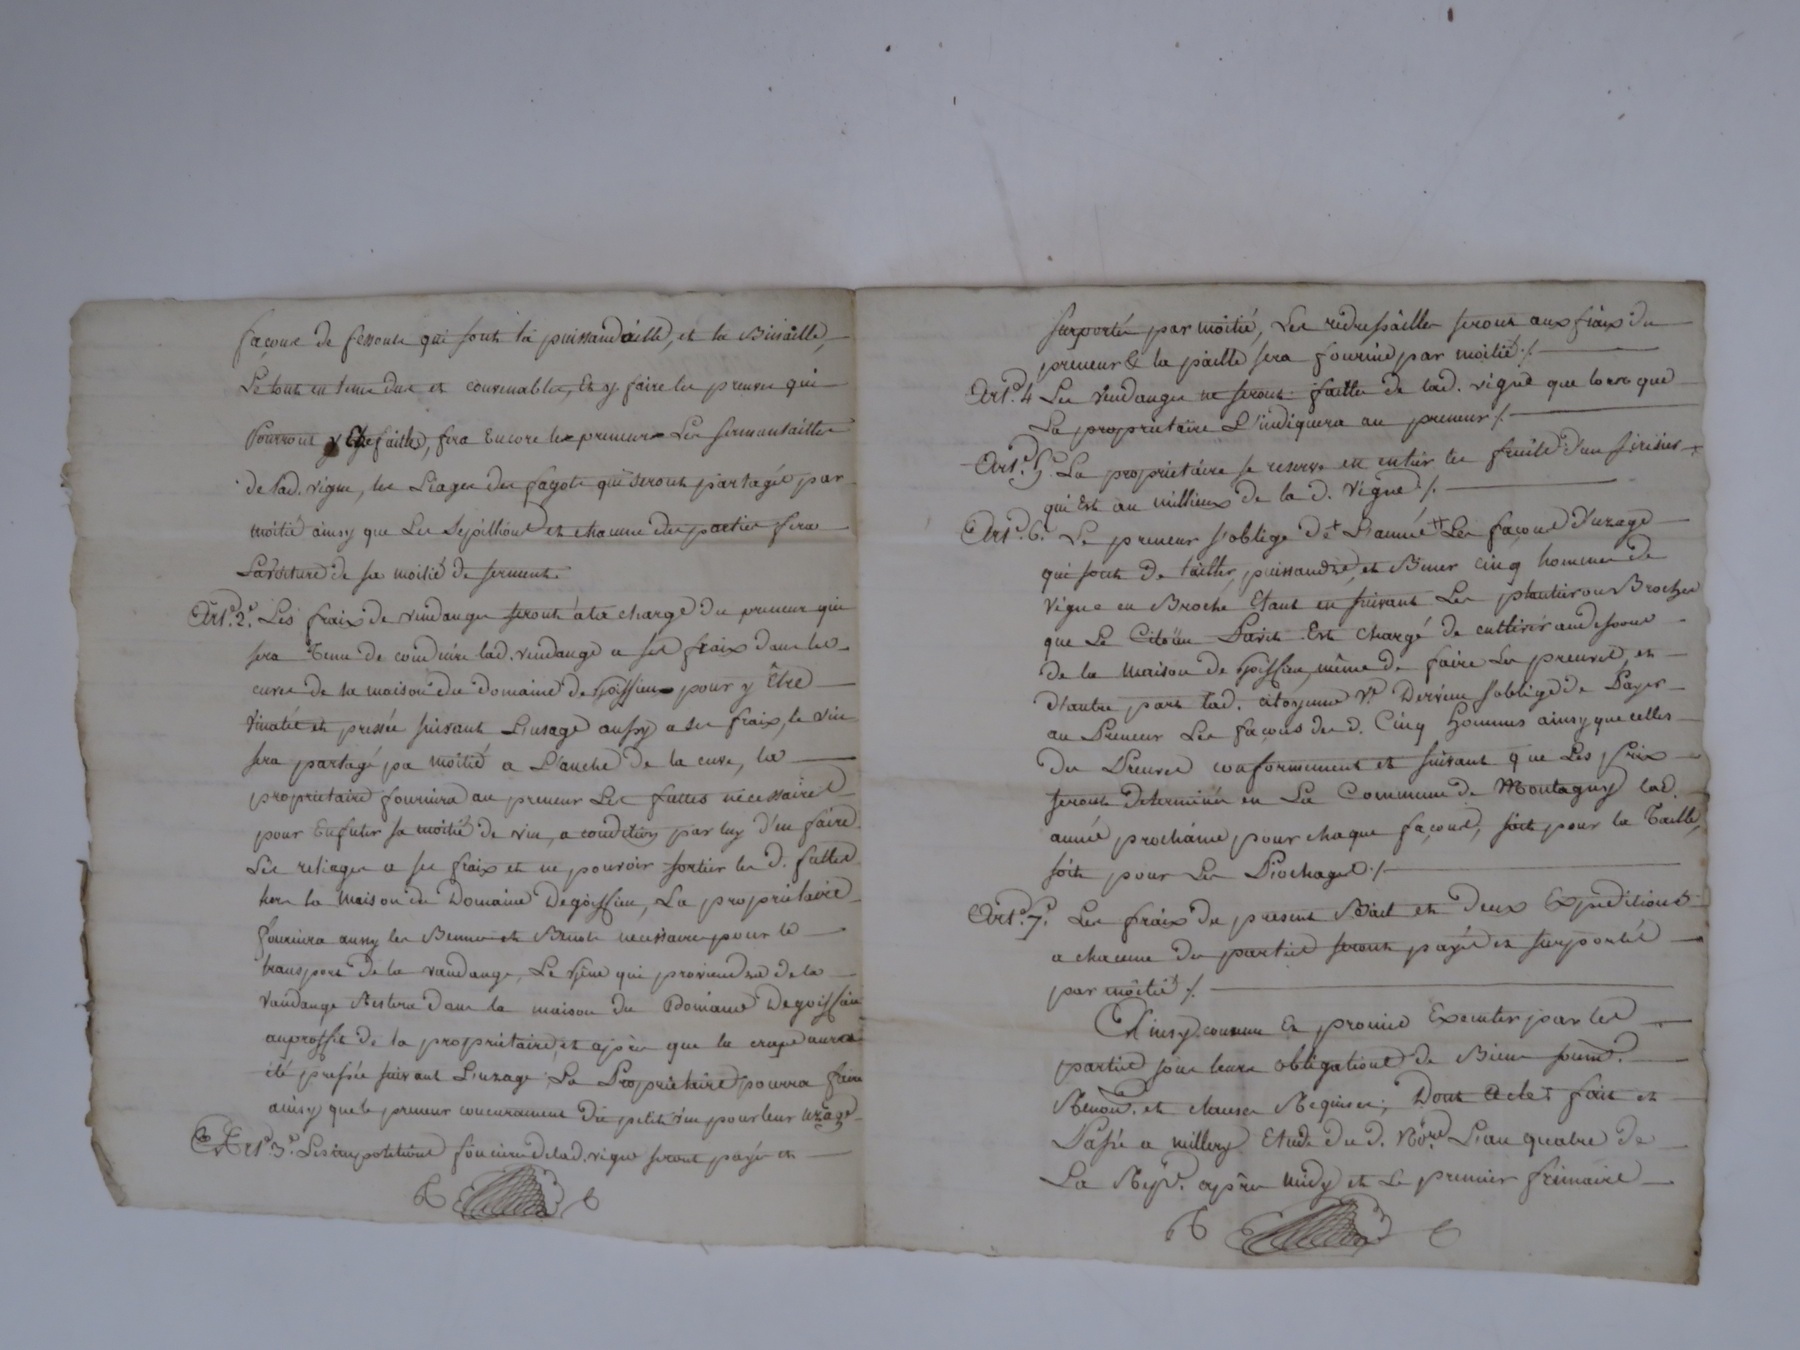 façons de fessoule qui sont la puissandaille, et la Binaille,
Le tout en tems dus et convenables, Et y faire les preuves qui
Pourront y Etre faittes, fera Encore le preneur Les sermentailles
de lad. vigne, les Liages des fagots qui seront partagés par
moitié ainsy que Les Sepillions et chacune des parties fera
La voiture de sa moitié de serments.
Art. 2. Les fraix de vendanges seront à la charge du preneur qui
sera Tenu de conduire lad. vendange a ses fraix dans les
cuves de la maison du Domaine de Goissieu pour y Etre
vinatée et pressée suivant L'usage aussy a ses fraix, le vin
sera partagé pa moitié a L'anche de la cuve, la
propriétaire fournira au preneur Les futtes nécessaires
pour Enfuter sa moitié de vin, a condition par luy d'en faire
Les reliages a ses fraix et ne pouvoir sortir les d. futtes
hors la maison du Domaine Degoissieu, La propriétaire
fournira aussy les Bennes et Benots necessaires pour le
transport de la vandange, Le Gêne qui proviendra de la
vandange Restera dans la maison du Domaine Degoissieu
au proffit de la propriétaire, et après que la crape aura
été pressée suivant L'uzage, La Propriétaire pourra faire
ainsy que le preneur concurament du petit vin pour leur uzage
Art. 3. Les impositions foncières de lad. vigne seront payés et
surportés par moitié, Les redressailles seront aux fraix du
preneur & la paille sera fournie par moitié ./.
Art. 4 Les vendanges ne seront faittes de lad. vigne que lorsque
La propriétaire L'indiquera au preneur ./.
Art. 5. La propriétaire se reserve en entier les fruits d'un serisier
qui Est au millieux de la d. vigne ./.
Art. 6. Le preneur s'oblige de + L'année ++ Les façons d'uzage
qui sont de tailler, puissandre, et Biner cinq hommes de
vigne en Broche Etant en suivant Les plantiers ou Broches
que Le Citoÿen Paris Est chargé de cultiver audessous
de la maison de Goissieu, même de faire Les preuves, et
d'autre part lad. citoyenne Ve. Dervieu s'oblige de Payer
au Preneur Les façons des d. Cinq hommes ainsy que celles
des Preuves conformement et suivant que Les Prix
seront determinés en La Commune de Montagny lad.
année prochaine pour chaque façons, soit pour la Taille,
soit pour Les Piochages ./.
Art. 7. Les fraix du present Bail et deux Expeditions
a chacune des parties seront payés et surportés
par moitié ./.
Ainsy convenu Et promis Executer par les
parties sous leurs obligations de Biens soum.
Renon. et clauses Requises; Dont Acte fait et
Passé a millery Etude du d. Nore. L'an quatre de
La Rep. après midy et Le premier frimaire